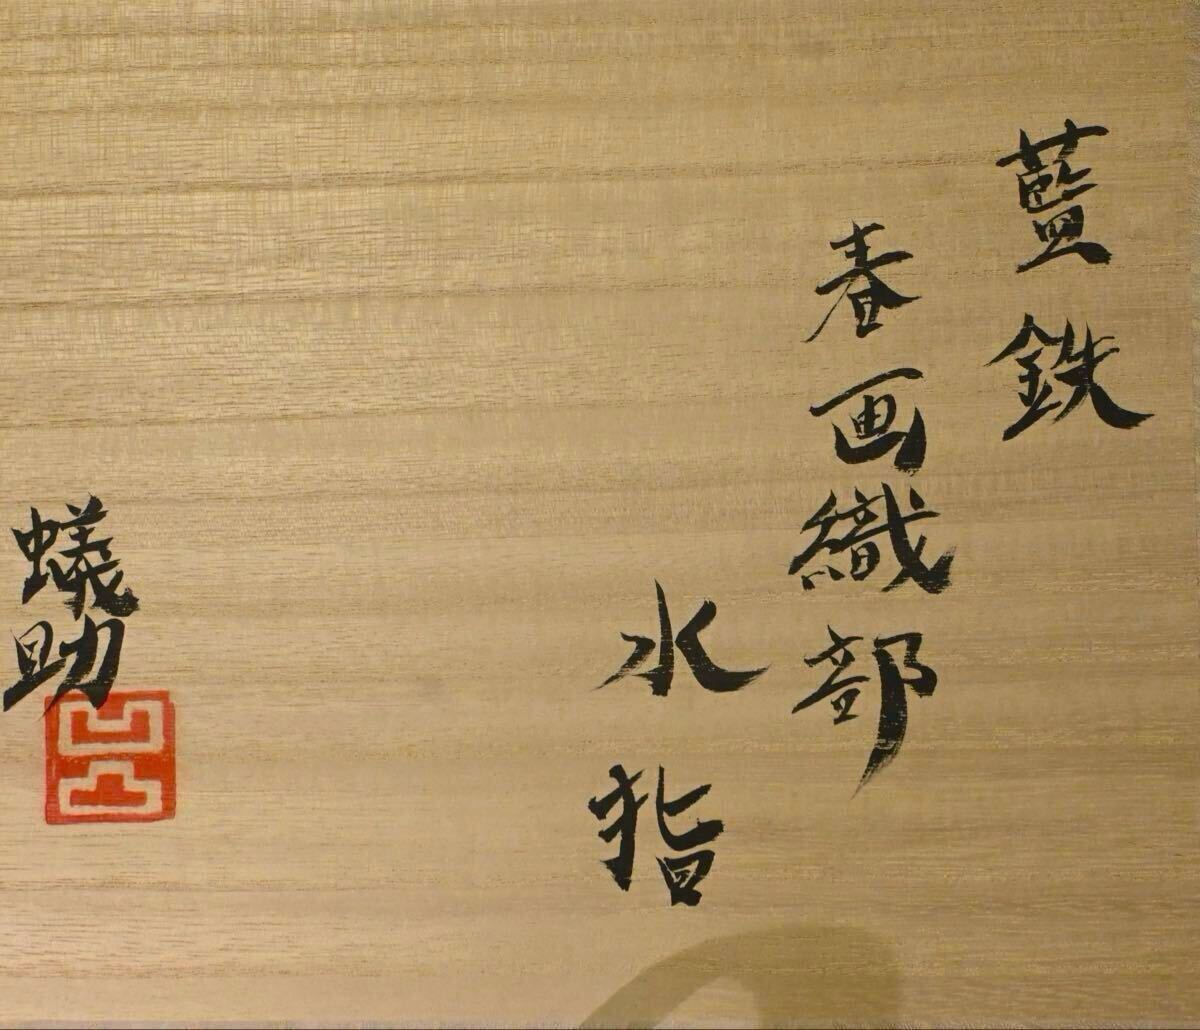 藍鉄
春画織部
水指
蟻助